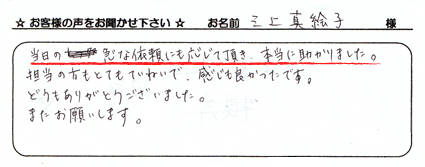 ☆ お客様の声をお聞かせ下さい ☆ お名前 三上真絵子 様
当日の急な依頼にも応じて頂き、本当に助かりました。
担当の方もとてもていねいで、感じも良かったです。
どうもありがとうございました。
またお願いします。